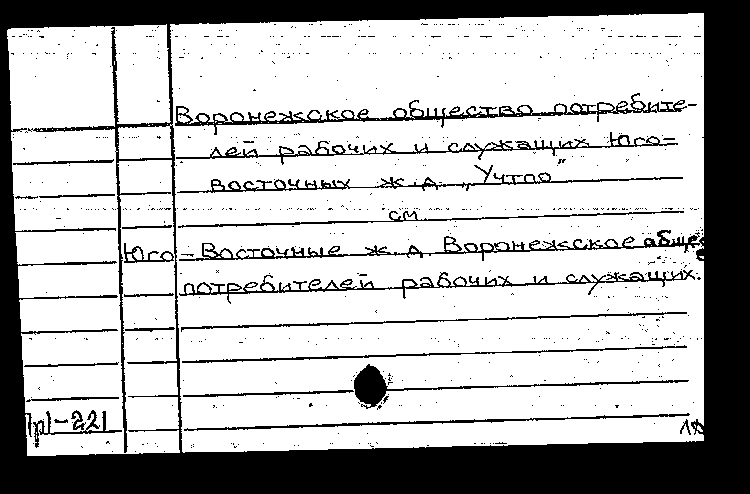 Воронежское общество потребите-
лей рабочих и служащих Юго=
восточных ж.д. „Учтпо"
см.
Юго-Восточные ж.д. Воронежское
потребителей рабочих и служащих.